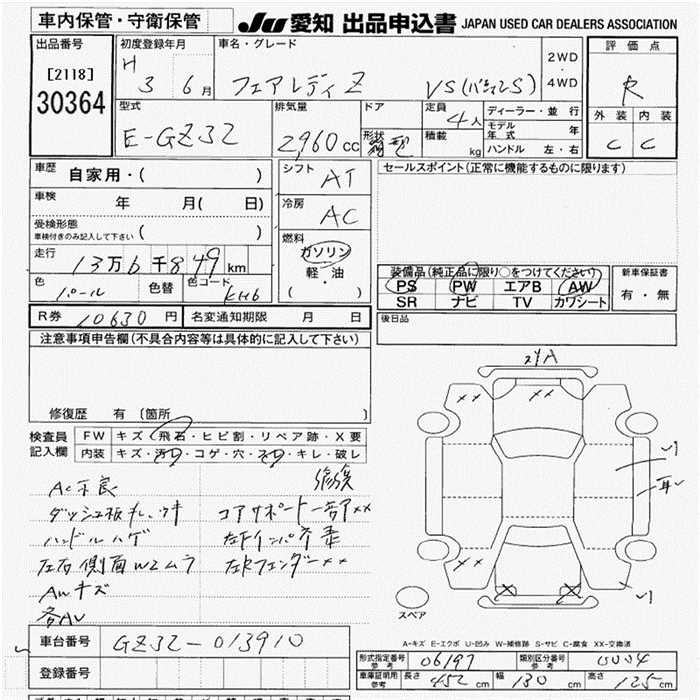 車内保管・守衛保管
JU 愛知 出品申込書 JAPAN USED CAR DEALERS ASSOCIATION
出品番号
[2118]
30364
初度登録年月
H 3 6月
車名・グレード
フェアレディZ
2WD
・
4WD
評価点
R
外装 内装
C C
型式
E-GZ32
排気量
2960cc
ドア
形状
定員
4人
積載
kg
ディーラー・並行
モデル年式 年
ハンドル 左・右
車歴
自家用・( )
車検
年 月( 日)
受検形態
車検付きのみ記入して下さい( )
走行
13万6千849km
色
パール
色替
色コード
KH6
シフト
AT
冷房
AC
燃料
ガソリン
・
軽・油
( )
セールスポイント(正常に機能するものに限ります)
装備品(純正品に限り○をつけてください)
PS PW エアB AW
SR ナビ TV カワシート
新車保証書
有・無
R券 10630円
名変通知期限 月 日
後日品
注意事項申告欄(不具合内容等は具体的に記入して下さい)
修復歴 有 [箇所 ]
検査員
記入欄
FW キズ・飛石・ヒビ割・リペア跡・X要
内装 キズ・汚れ・コゲ・穴・スレ・キレ・破レ
AC不良
ダッシュ板
ハンドルハゲ
左右側面W2ムラ
AWキズ
各AU
修復
コアサポート一部ア××
左下インパネ
左Rフェンダー××
××
××
××
スペア
A-キズ E-エクボ U-凹み W-補修跡 S-サビ C-腐食 XX-交換済
車台番号 GZ32-013910
登録番号
形式指定番号
参考
06197
類別区分番号
参考
0004
車庫証明用
参考
長さ 452cm 幅 180cm 高さ 125cm